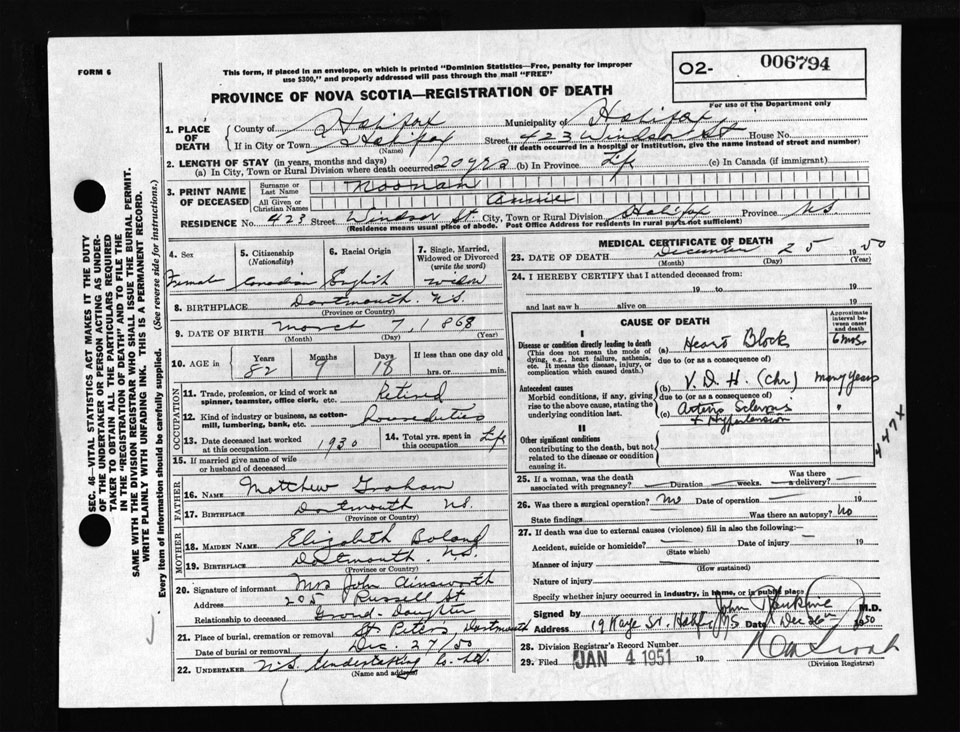 FORM 6
This form, if placed in an envelope, on which is printed "Dominion Statistics—Free, penalty for improper
use $300," and properly addressed will pass through the mail "FREE"
O2- 006794
For use of the Department only
PROVINCE OF NOVA SCOTIA—REGISTRATION OF DEATH
SEC. 46—VITAL STATISTICS ACT MAKES IT THE DUTY
OF THE UNDERTAKER OR PERSON ACTING AS UNDER-
TAKER TO OBTAIN ALL THE PARTICULARS REQUIRED
IN THE "REGISTRATION OF DEATH" AND TO FILE THE
SAME WITH THE DIVISION REGISTRAR WHO SHALL ISSUE THE BURIAL PERMIT.
WRITE PLAINLY WITH UNFADING INK. THIS IS A PERMANENT RECORD.
Every item of information should be carefully supplied. (See reverse side for instructions.)
1. PLACE OF DEATH
County of Halifax Municipality of Halifax
If in City or Town Halifax Street 423 Windsor St House No.
(Name) (If death occurred in a hospital or institution, give the name instead of street and number)
2. LENGTH OF STAY (in years, months and days)
(a) In City, Town or Rural Division where death occurred 20 yrs (b) In Province Life (c) In Canada (if immigrant)
3. PRINT NAME OF DECEASED
Surname or Last Name Noonan
All Given or Christian Names Annie
RESIDENCE No. 423 Street Windsor St City, Town or Rural Division Halifax Province N.S.
(Residence means usual place of abode. Post Office Address for residents in rural parts not sufficient)
4. Sex Female
5. Citizenship (Nationality) Canadian
6. Racial Origin English
7. Single, Married, Widowed or Divorced (write the word) Widow
8. BIRTHPLACE Dartmouth N.S.
(Province or Country)
9. DATE OF BIRTH March 7, 1868
(Month) (Day) (Year)
10. AGE in Years 82 Months 9 Days 18 If less than one day old
hrs. or min.
OCCUPATION
11. Trade, profession, or kind of work as
spinner, teamster, office clerk, etc. Retired
12. Kind of industry or business, as cotton-
mill, lumbering, bank, etc.
13. Date deceased last worked
at this occupation 1930
14. Total yrs. spent in
this occupation Life
15. If married give name of wife
or husband of deceased
FATHER
16. NAME Matthew Graham
17. BIRTHPLACE Dartmouth N.S.
(Province or Country)
MOTHER
18. MAIDEN NAME Elizabeth Boland
19. BIRTHPLACE Dartmouth N.S.
(Province or Country)
20. Signature of informant Mrs John Ainsworth
Address 205 Russell St
Relationship to deceased Grand-Daughter
21. Place of burial, cremation or removal St Peters, Dartmouth
Date of burial or removal Dec. 27/50
22. UNDERTAKER N.S. Undertaking Co. Ltd.
(Name and address)
MEDICAL CERTIFICATE OF DEATH
23. DATE OF DEATH December 25 1950
(Month) (Day) (Year)
24. I HEREBY CERTIFY that I attended deceased from:
19 to 19
and last saw h alive on 19
CAUSE OF DEATH
Approximate interval between onset and death
I
Disease or condition directly leading to death
(This does not mean the mode of
dying, e.g., heart failure, asthenia,
etc. It means the disease, injury, or
complication which caused death.)
(a) Heart Block 6 mos.
due to (or as a consequence of)
Antecedent causes
Morbid conditions, if any, giving
rise to the above cause, stating the
underlying condition last.
(b) V. D. H. (chr) many years
due to (or as a consequence of)
(c) Arterio Sclerosis "
+ Hypertension
447X
II
Other significant conditions
contributing to the death, but not
related to the disease or condition
causing it.
25. If a woman, was the death
associated with pregnancy? — Duration — weeks. Was there a delivery? —
26. Was there a surgical operation? No Date of operation — 19
State findings Was there an autopsy? No
27. If death was due to external causes (violence) fill in also the following:—
Accident, suicide or homicide? — Date of injury — 19
(State which)
Manner of injury
(How sustained)
Nature of injury
Specify whether injury occurred in industry, in home, or in public place
Signed by John Rankine M.D.
Address 19 Kaye St. Halifax NS Date Dec 26th 1950
28. Division Registrar's Record Number
29. Filed JAN 4 1951 19
(Division Registrar)